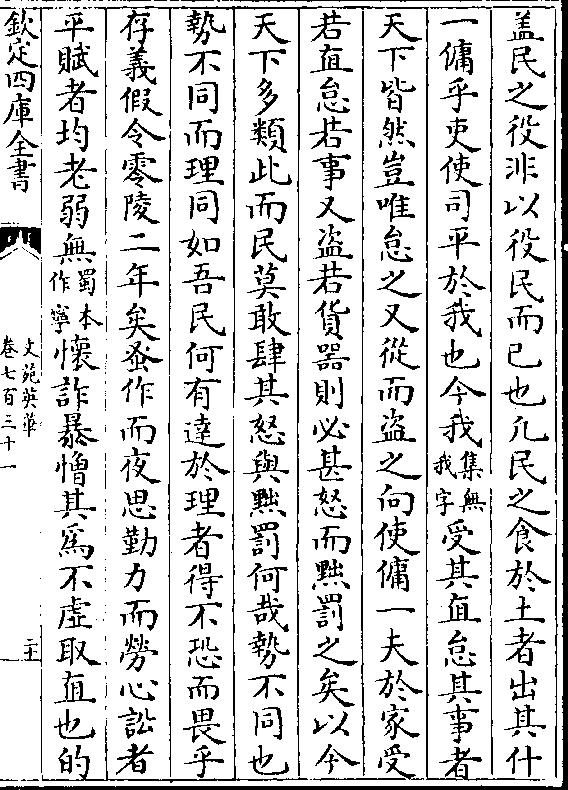 盖民之役非以役民而已也凡民之食於土者出其什
一傭乎吏使司平於我也今我集無我字受其直怠其事者
天下皆然豈唯怠之又從而盜之向使傭一夫於家受
若直怠若事又盜若貨器則必甚怒而黜罰之矣以今
天下多類此而民莫敢肆其怒與黜罰何哉勢不同也
勢不同而理同如吾民何有達於理者得不恐而畏乎
存義假令零陵二年矣蚤作而夜思勤力而勞心訟者
平賦者均老弱無蜀本作寧懷詐暴憎其爲不虚取直也的
欽定四庫全書
文苑英華
卷七百三十一
二十